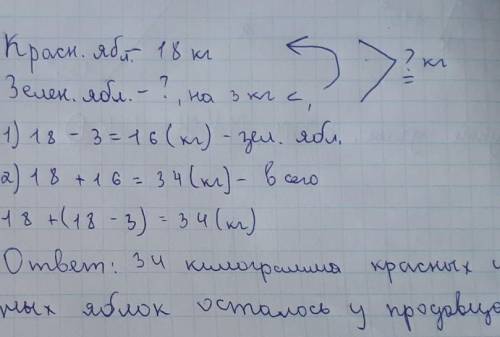 Красн. ябл. - 18 кг
Зелен. ябл. - ?, на 3 кг <, ? кг
1) 18 - 3 = 16 (кг) - зел. ябл.
2) 18 + 16 = 34 (кг) - всего
18 + (18 - 3) = 34 (кг)
Ответ: 34 килограмма красных и
ных яблок осталось у продавца